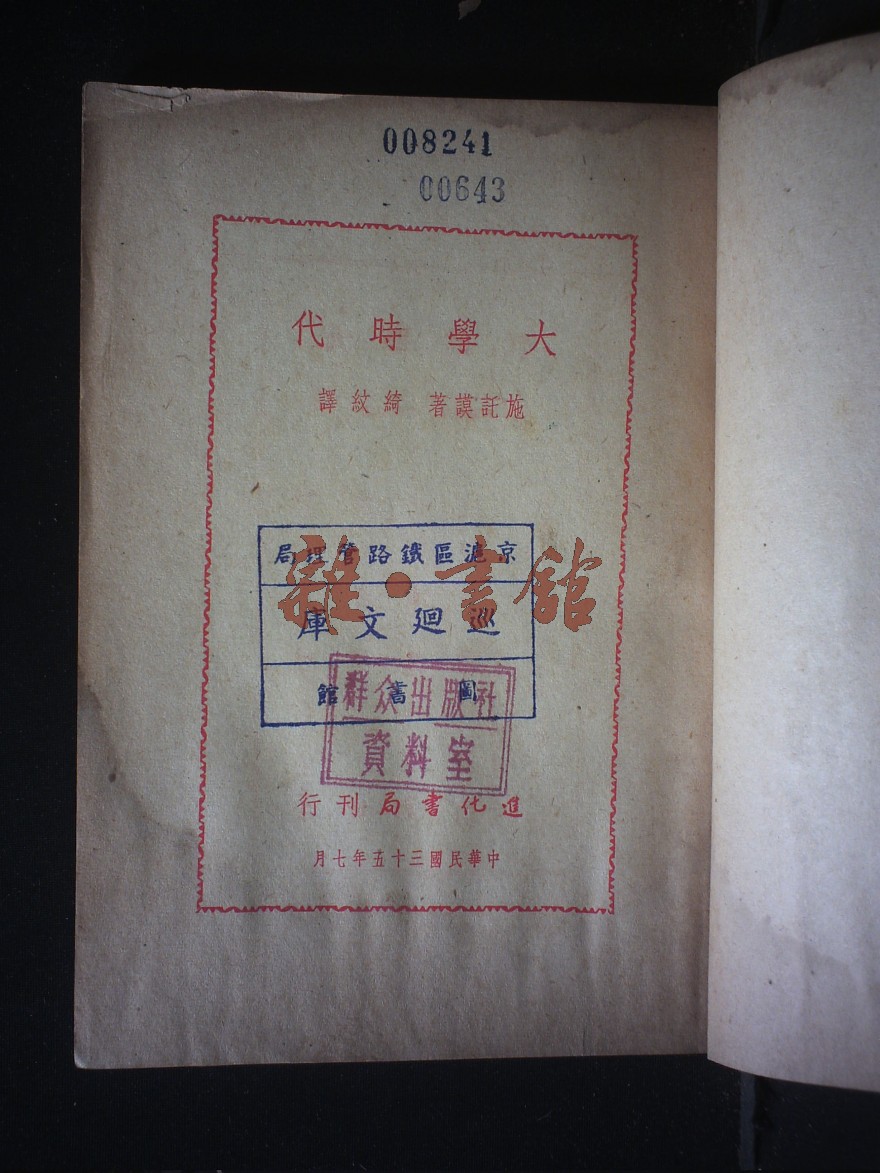 008241
00643
大學時代
施託謨著 綺紋譯
京滬區鐵路管理局
雜·書館
巡迴文庫
圖書館
群众出版社
資料室
進化書局刊行
中華民國三十五年七月